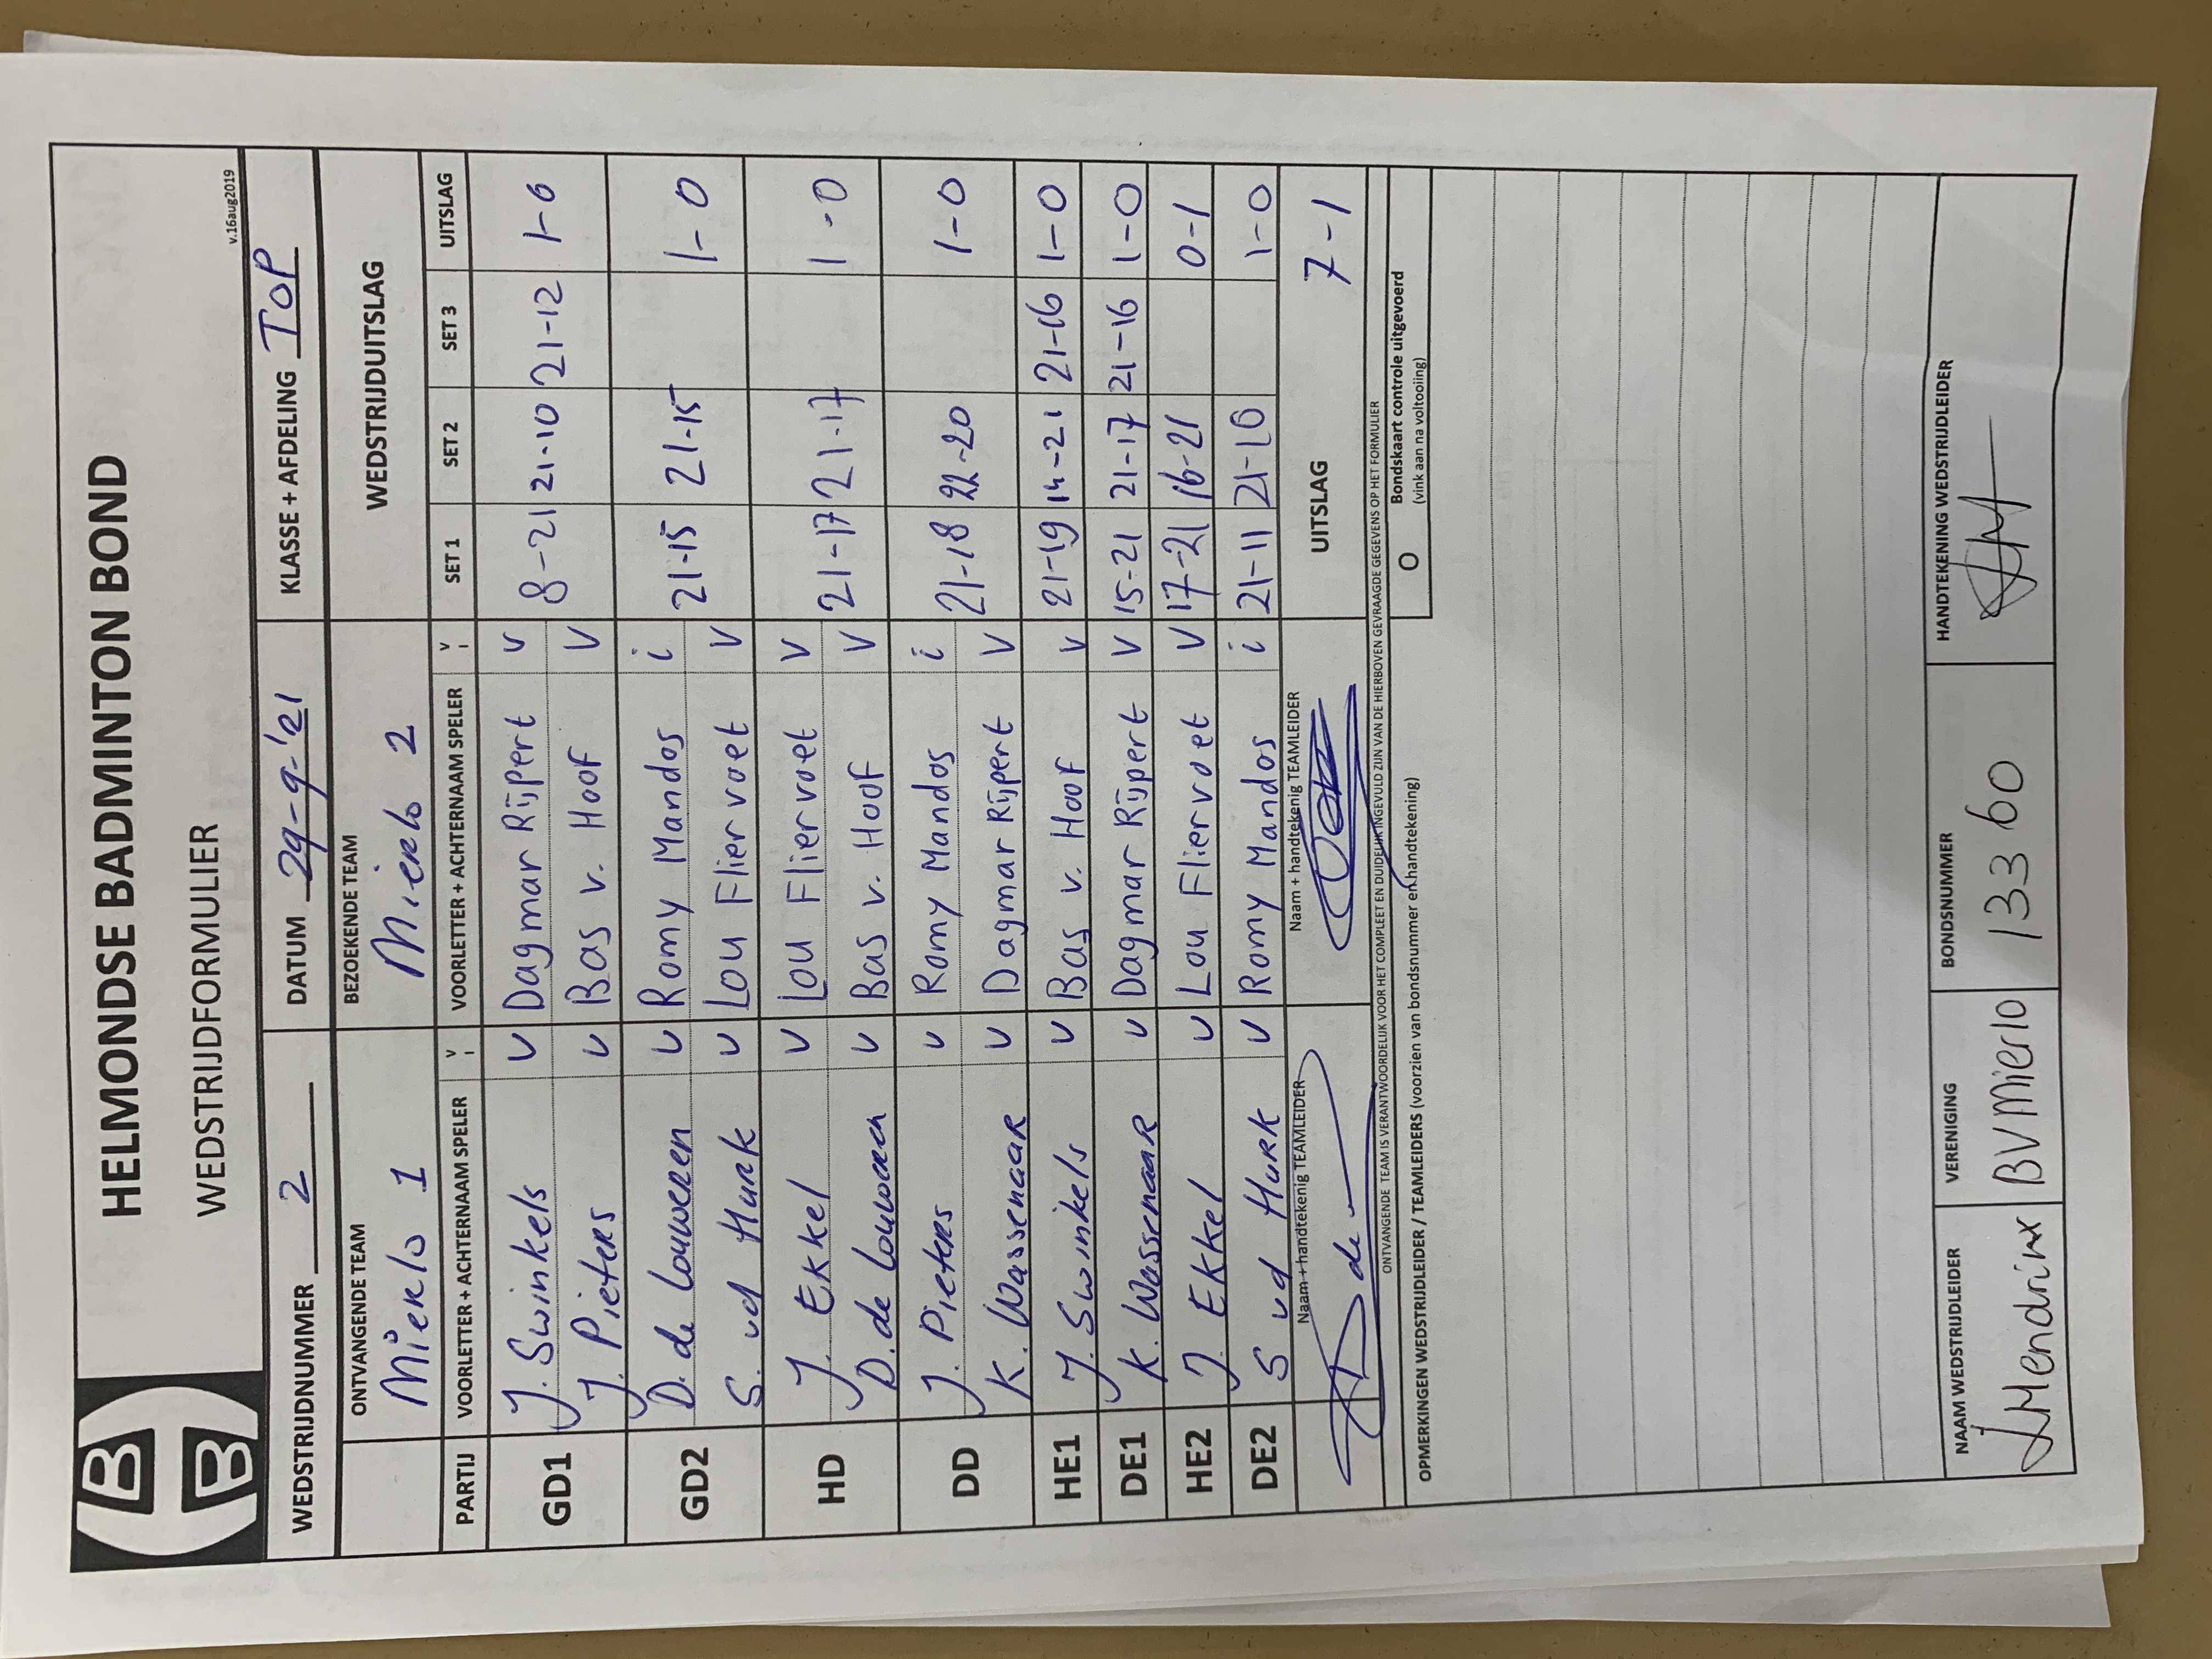 B
B
HELMONDSE BADMINTON BOND
WEDSTRIJDFORMULIER
v.16aug2019
WEDSTRIJDNUMMER 2 DATUM 29-9-'21 KLASSE + AFDELING TOP
ONTVANGENDE TEAM BEZOEKENDE TEAM WEDSTRIJDUITSLAG
Mierlo 1 Mierlo 2
PARTIJ VOORLETTER + ACHTERNAAM SPELER V I VOORLETTER + ACHTERNAAM SPELER V I SET 1 SET 2 SET 3 UITSLAG
GD1 J. Swinkels v Dagmar Rijpert v 8-21 21-10 21-12 1-0
J. Pieters v Bas v. Hoof v
GD2 D. de Louweren v Romy Mandos i 21-15 21-15 1-0
S. vd Hurk v Lou Fliervoet v
HD J. Ekkel v Lou Fliervoet v 21-17 21-17 1-0
D. de Louweren v Bas v. Hoof v
DD J. Pieters v Romy Mandos i 21-18 22-20 1-0
K. Wassenaar v Dagmar Rijpert v
HE1 J. Swinkels v Bas v. Hoof v 21-19 14-21 21-16 1-0
DE1 K. Wassenaar v Dagmar Rijpert v 15-21 21-17 21-16 1-0
HE2 J. Ekkel v Lou Fliervoet v 17-21 16-21 0-1
DE2 S vd Hurk v Romy Mandos i 21-11 21-10 1-0
Naam + handtekenig TEAMLEIDER Naam + handtekenig TEAMLEIDER UITSLAG 7-1
ONTVANGENDE TEAM IS VERANTWOORDELIJK VOOR HET COMPLEET EN DUIDELIJK INGEVULD ZIJN VAN DE HIERBOVEN GEVRAAGDE GEGEVENS OP HET FORMULIER
OPMERKINGEN WEDSTRIJDLEIDER / TEAMLEIDERS (voorzien van bondsnummer en handtekening)
O Bondskaart controle uitgevoerd
(vink aan na voltooiing)
NAAM WEDSTRIJDLEIDER VERENIGING BONDSNUMMER HANDTEKENING WEDSTRIJDLEIDER
LHendrinx BV Mierlo 13360